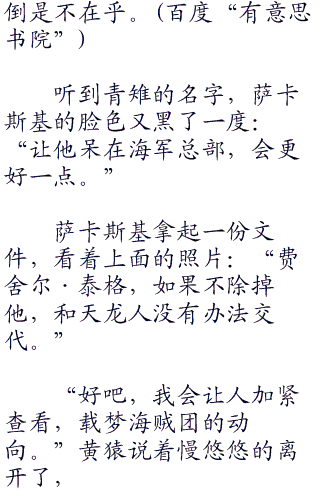 倒是不在乎。(百度“有意思
书院”)
听到青雉的名字，萨卡
斯基的脸色又黑了一度：
“让他呆在海军总部，会更
好一点。”
萨卡斯基拿起一份文
件，看着上面的照片：“费
舍尔·泰格，如果不除掉
他，和天龙人没有办法交
代。”
“好吧，我会让人加紧
查看，载梦海贼团的动
向。”黄猿说着慢悠悠的离
开了，